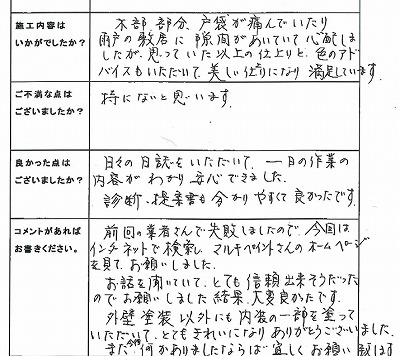 施工内容は
いかがでしたか?
木部、部分、戸袋が痛んでいたり
雨戸の敷居に隙間があいていて心配しま
したが、思っていた以上の仕上りと、色のアド
バイスもいただいて、美しい仕上りになり満足しています。
ご不満な点は
ございましたか?
特にないと思います。
良かった点は
ございましたか?
日々の日誌をいただいて、一日の作業の
内容がわかり安心できました。
診断、提案書も分かりやすくて良かったです。
コメントがあれば
お書きください。
前回の業者さんで失敗しましたので、今回は
インターネットで検索し、マルキペイントさんのホームページ
を見て、お願いしました。
お話を聞いていて、とても信頼出来そうだった
のでお願いしました結果、大変良かったです。
外壁塗装以外にも内装の一部を塗って
いただいて、とてもきれいになりありがとうございました。
また、今後何かありましたならば宜しくお願い致します